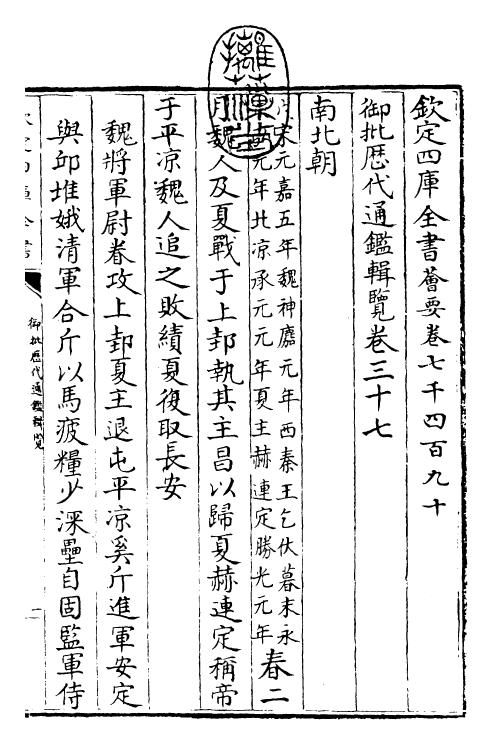 欽定四庫全書薈要卷七千四百九十
御批歴代通鑑輯覽卷三十七
南北朝
宋元嘉五年魏神䴥元年西秦王乞伏暮末永
元年北凉承元元年夏主赫連定勝光元年
春二
月魏人及夏戰于上邽執其主昌以歸夏赫連定稱帝
于平凉魏人追之敗績夏復取長安
魏將軍尉眷攻上邽夏主退屯平凉奚斤進軍安定
與邱堆娥清軍合斤以馬疲糧少深壘自固監軍侍
御批歴代通鑑輯覽